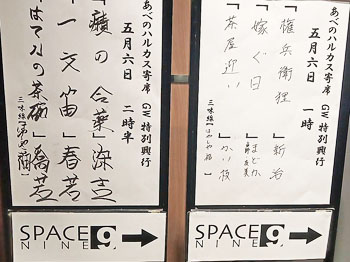 あべのハルカス寄席 GW 特別興行
五月六日 一時
「権兵衛狸」新治
「嫁ぐ日」まどか
「茶屋迎い」かい枝
あべのハルカス寄席 GW 特別興行
五月六日 二時半
「癪の合薬」染吉
「一文笛」春若
「はてなの茶碗」喬若
三味線
SPACE
NINE
9
SPACE
NINE
9